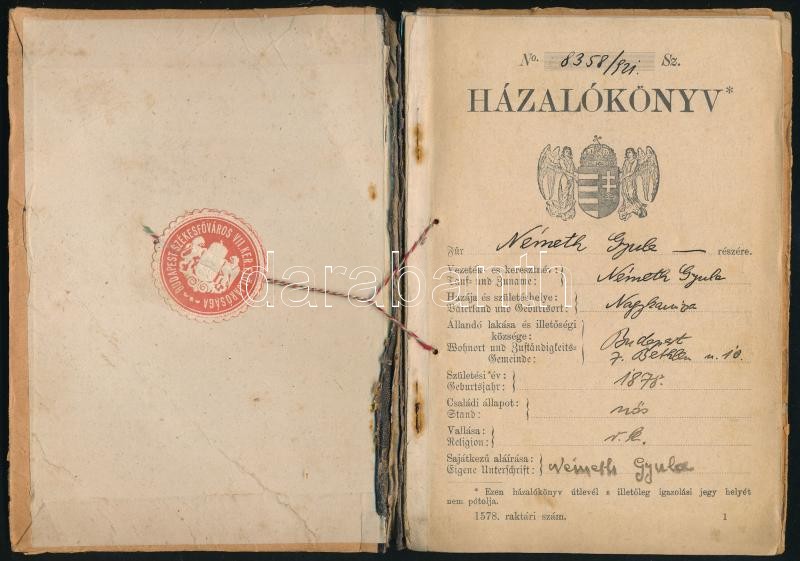 BUDAPEST SZÉKESFŐVÁROS VII KER
No. 8358/921. Sz.
HÁZALÓKÖNYV*
Für Németh Gyula — részére.
Vezeték- és keresztnév: Németh Gyula
Tauf- und Zuname:
Hazája és születéshelye: Nagykanizsa
Vaterland und Geburtsort:
Állandó lakása és illetőségi
községe: Budapest
Wohnort und Zuständigkeits- 7. Bethlen u. 10
Gemeinde:
Születési év: 1878.
Geburtsjahr:
Családi állapot: nős
Stand:
Vallása: r. k.
Religion:
Sajátkezű aláírása: Németh Gyula
Eigene Unterschrift:
* Ezen házalókönyv útlevél s illetőleg igazolási jegy helyét
nem pótolja.
1578. raktári szám. 1
darabanth